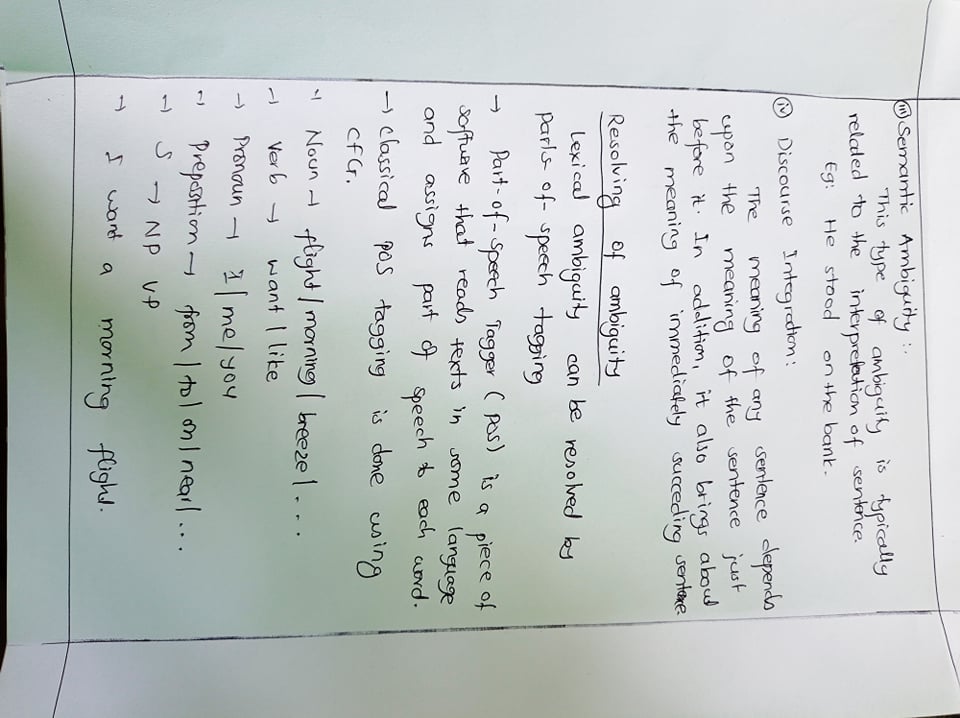 (iii) Semantic Ambiguity :.
This type of ambiguity is typically
related to the interpretation of sentence
Eg: He stood on the bank.
(iv) Discourse Integration :
The meaning of any sentence depends
upon the meaning of the sentence just
before it. In addition, it also brings about
the meaning of immediately succeeding sentence
Resolving of ambiguity
Lexical ambiguity can be resolved by
parts-of-speech tagging
→ Part-of-speech Tagger (POS) is a piece of
software that reads texts in some language
and assigns part of speech to each word.
→ classical POS tagging is done using
CFG.
→ Noun → flight / morning / breeze / ...
→ Verb → want / like
→ Pronoun → I / me / you
→ Preposition → from / to / on / near / ...
→ S → NP VP
→ I want a morning flight.